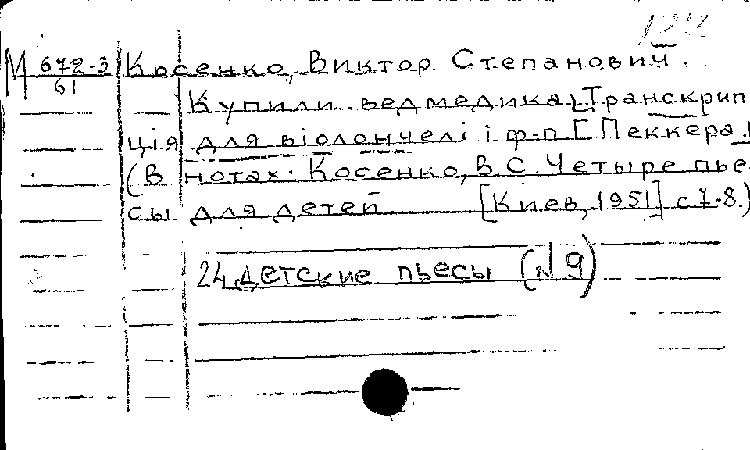 М 672-3 Косенко, Виктор Степанович.
61
Купили ведмедика. Транскрип
ція для віолончелі і ф-п [Пеккера]
(В нотах: Косенко, В.С. Четыре пье
сы для детей [Киев, 1951] с 7-8.)
24 детские пьесы (№ 9)